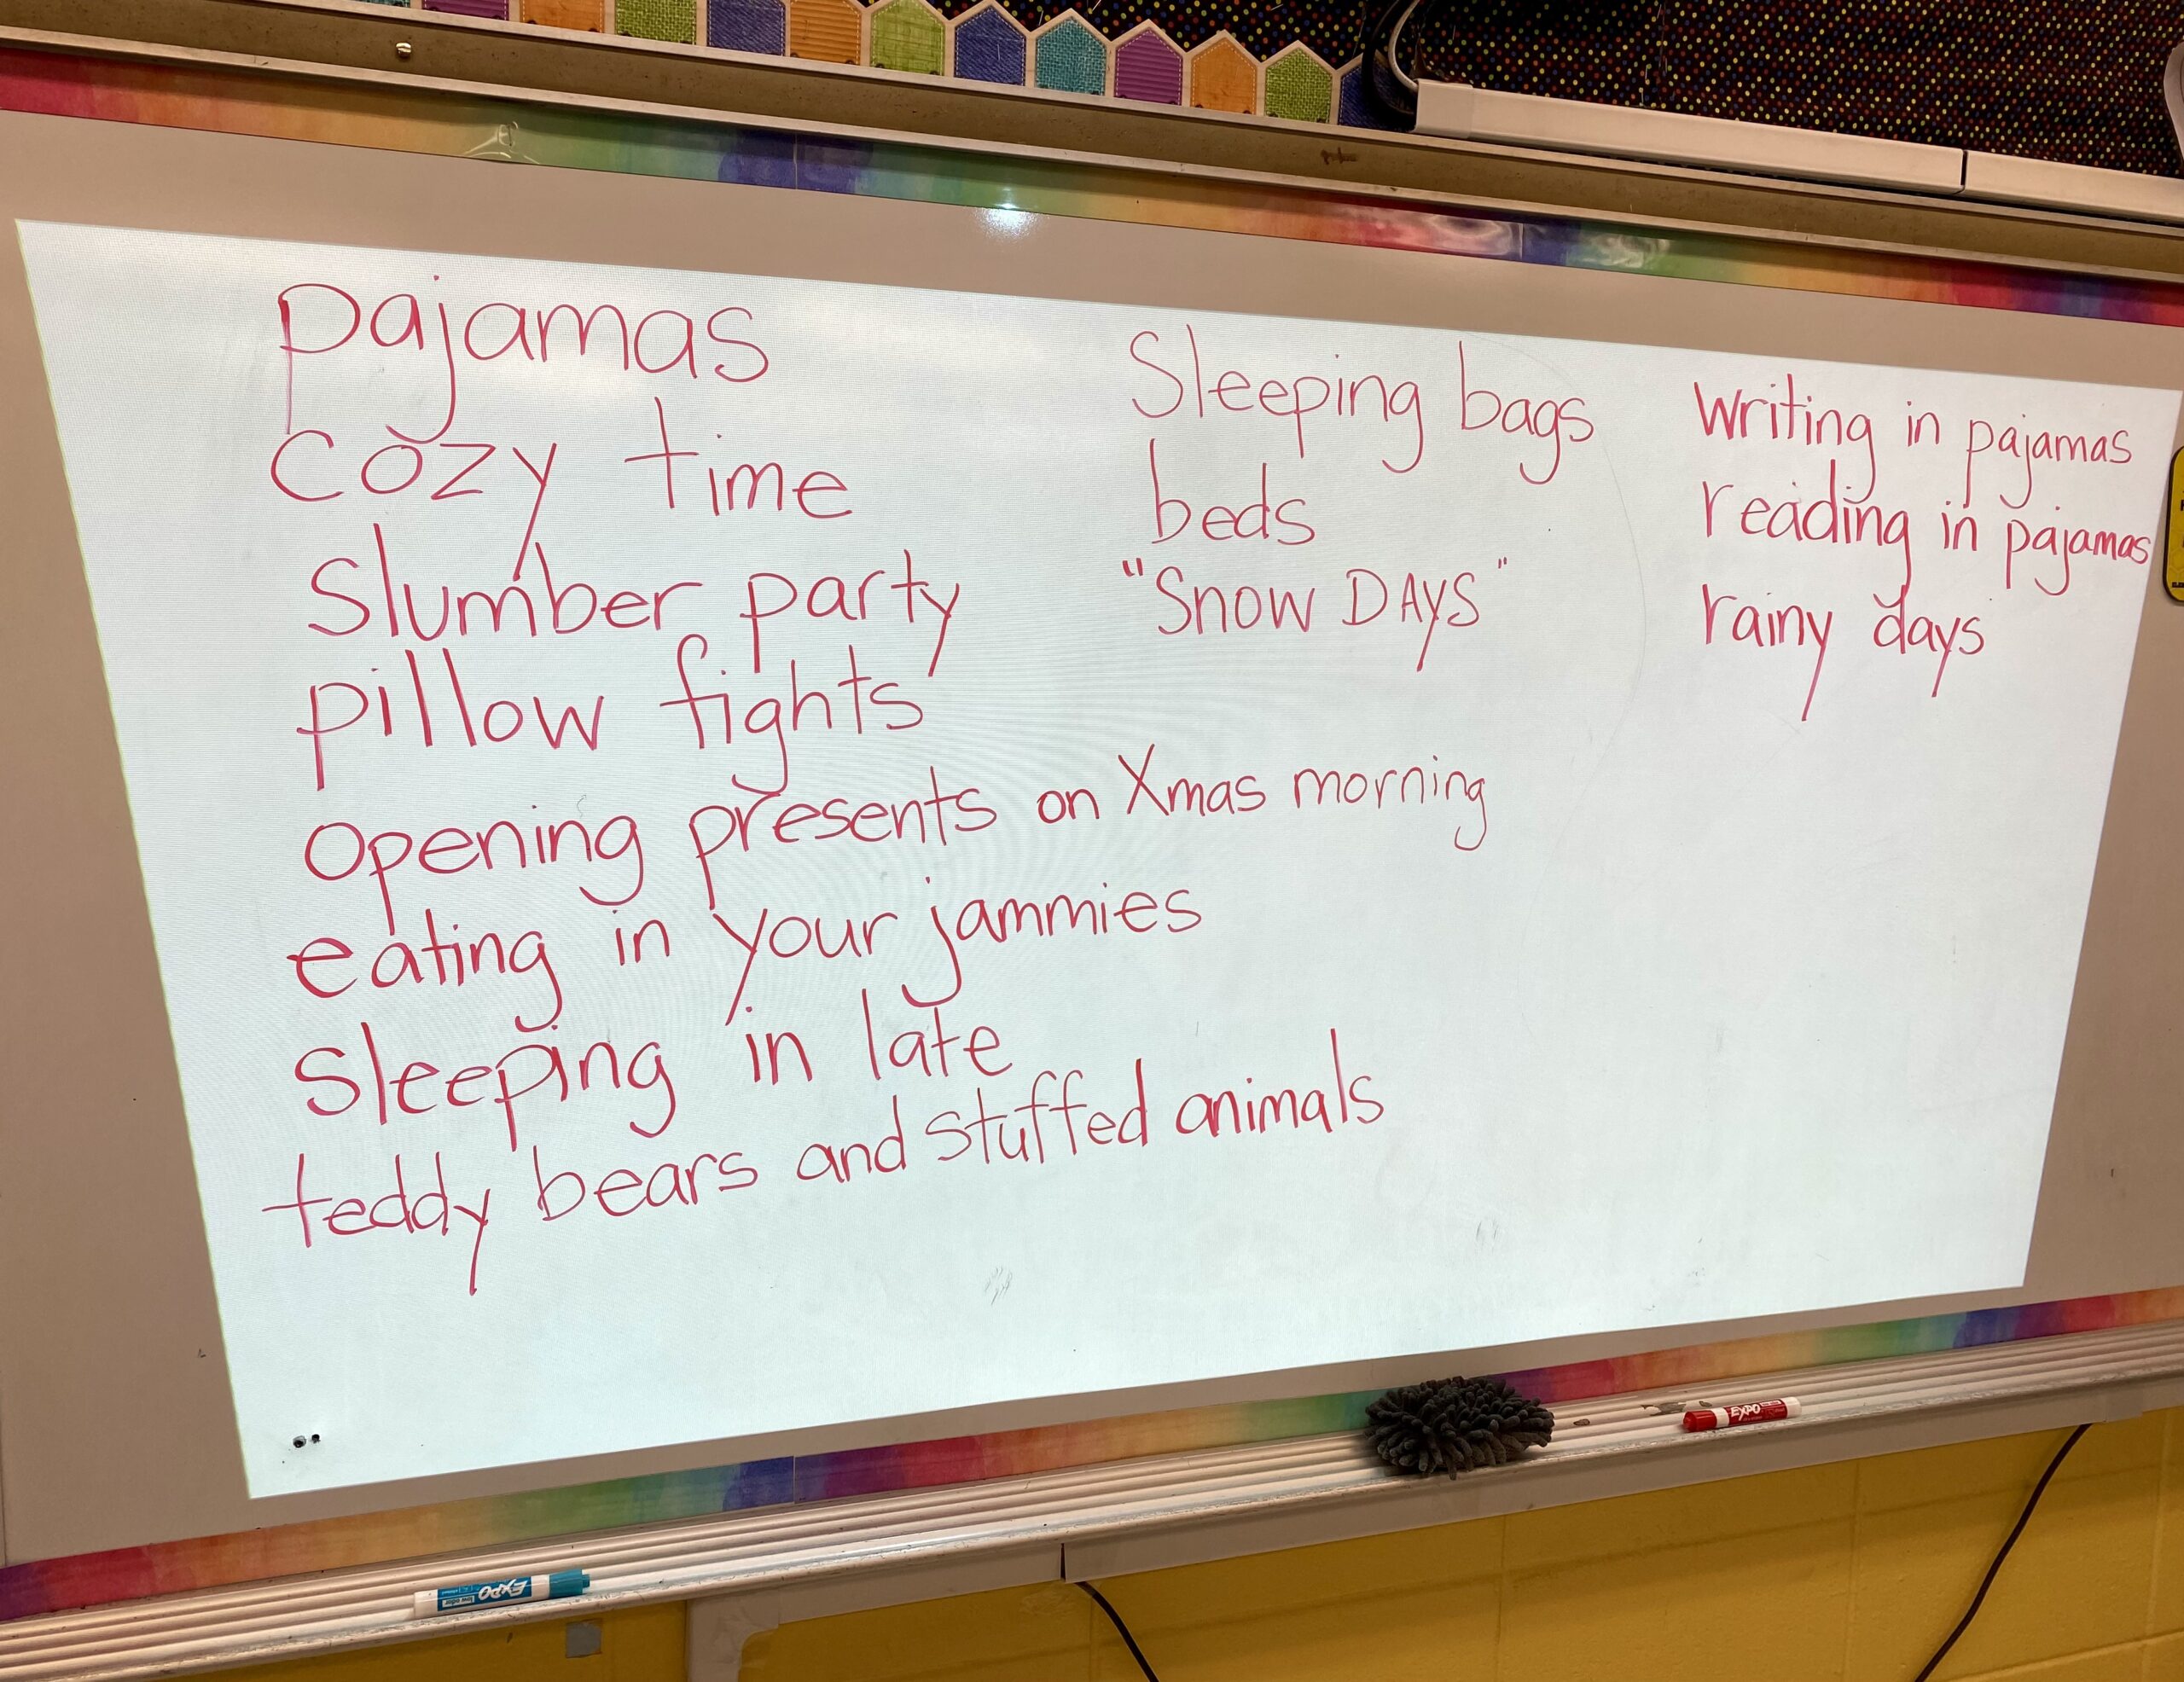 pajamas
cozy time
Slumber party
pillow fights
Opening presents on Xmas morning
eating in your jammies
Sleeping in late
teddy bears and stuffed animals
Sleeping bags
beds
"Snow DAYS"
Writing in pajamas
reading in pajamas
rainy days
EXPO
EXPO